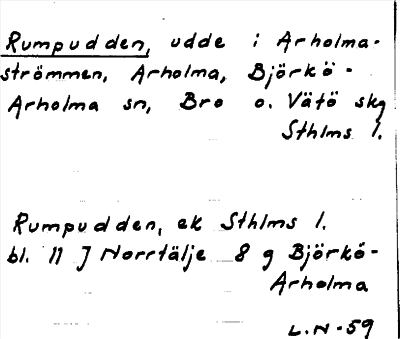 Rumpudden, udde i Arholma-
strömmen, Arholma, Björkö-
Arholma sn, Bro o. Vätö skg
Sthlms l.
Rumpudden, ek Sthlms l.
bl. 11 J Norrtälje 8 g Björkö-
Arholma
L.N-59